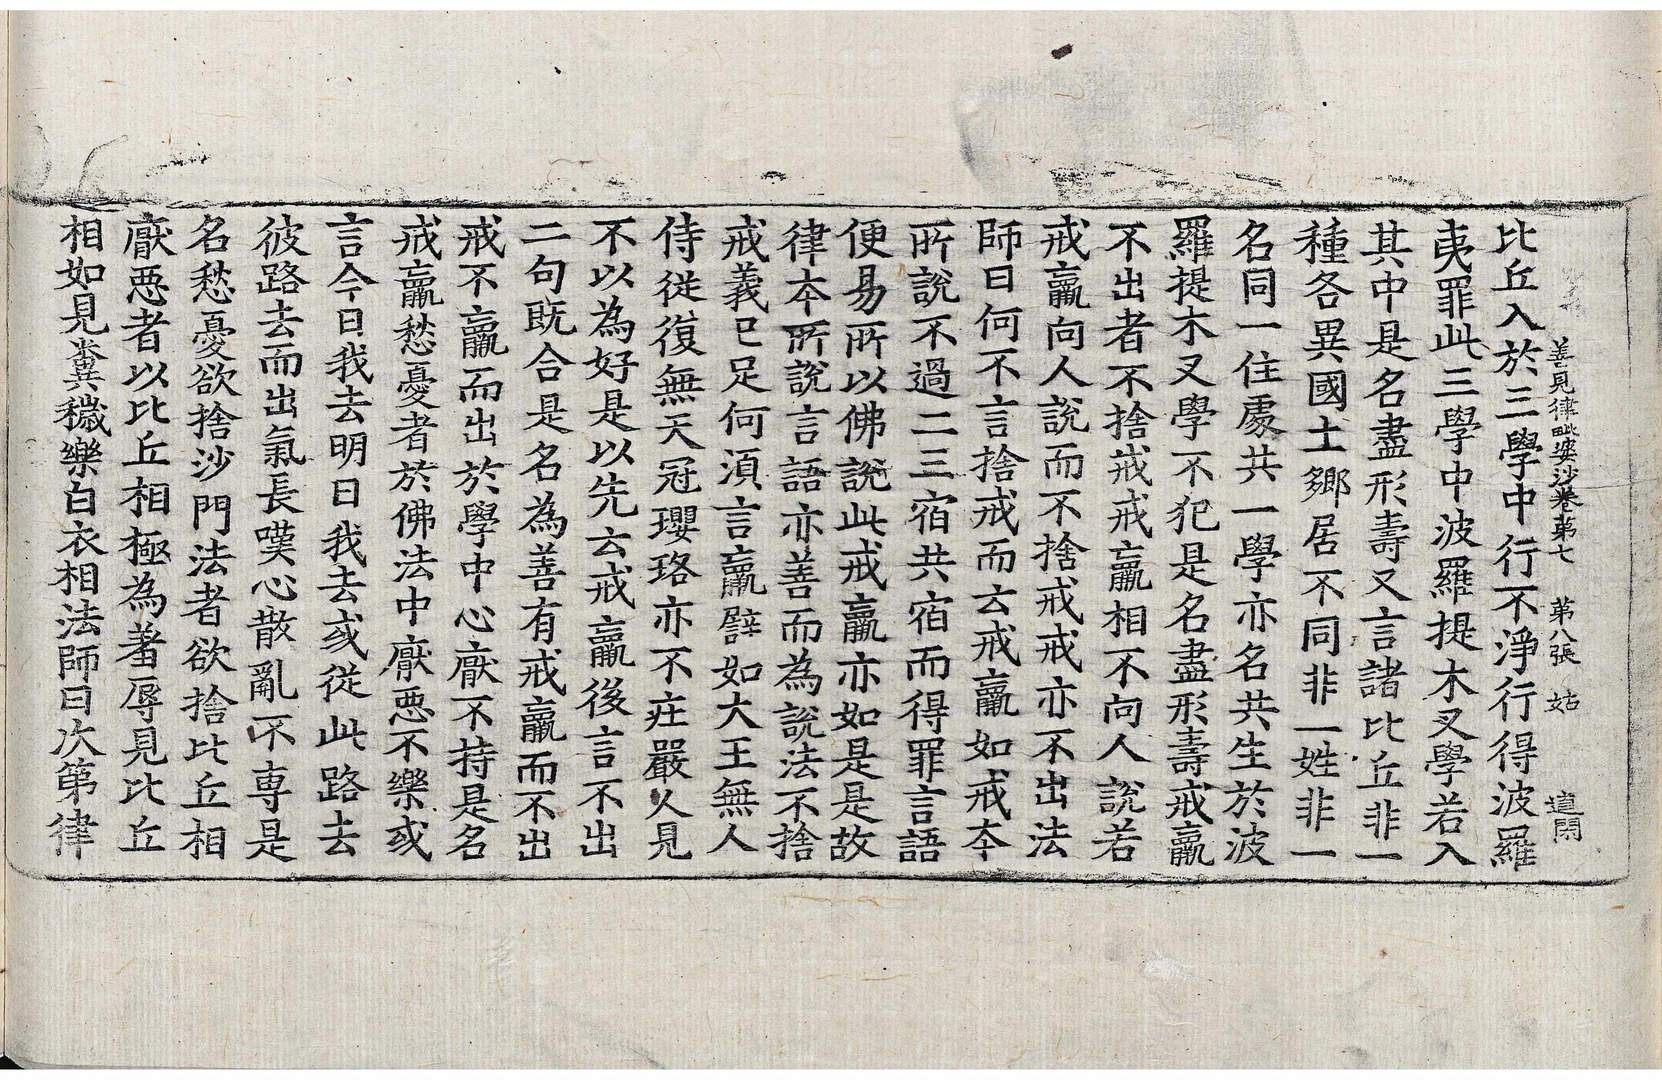 善見律毗婆沙卷第七 第八張 姑
比丘入於三學中行不淨行得波羅
夷罪此三學中波羅提木叉學若入
其中是名盡形壽又言諸比丘非一
種各異國土鄉居不同非一姓非一
名同一住處共一學亦名共生於波
羅提木叉學不犯是名盡形壽戒羸
不出者不捨戒戒羸相不向人說若
戒羸向人說而不捨戒戒亦不出法
師曰何不言捨戒而云戒羸如戒本
所說不過二三宿共宿而得罪言語
便易所以佛說此戒羸亦如是是故
律本所說言語亦善而為說法不捨
戒義已足何湏言羸譬如大王無人
侍從復無天冠瓔珞亦不庄嚴人見
不以為好是以先云戒羸後言不出
二句既合是名為善有戒羸而不出
戒不羸而出於學中心厭不持是名
戒羸愁憂者於佛法中厭惡不樂或
言今日我去明日我去或從此路去
彼路去而出氣長嘆心散亂不専是
名愁憂欲捨沙門法者欲捨比丘相
厭惡者以比丘相極為羞辱見比丘
相如見糞穢樂白衣相法師曰次第律